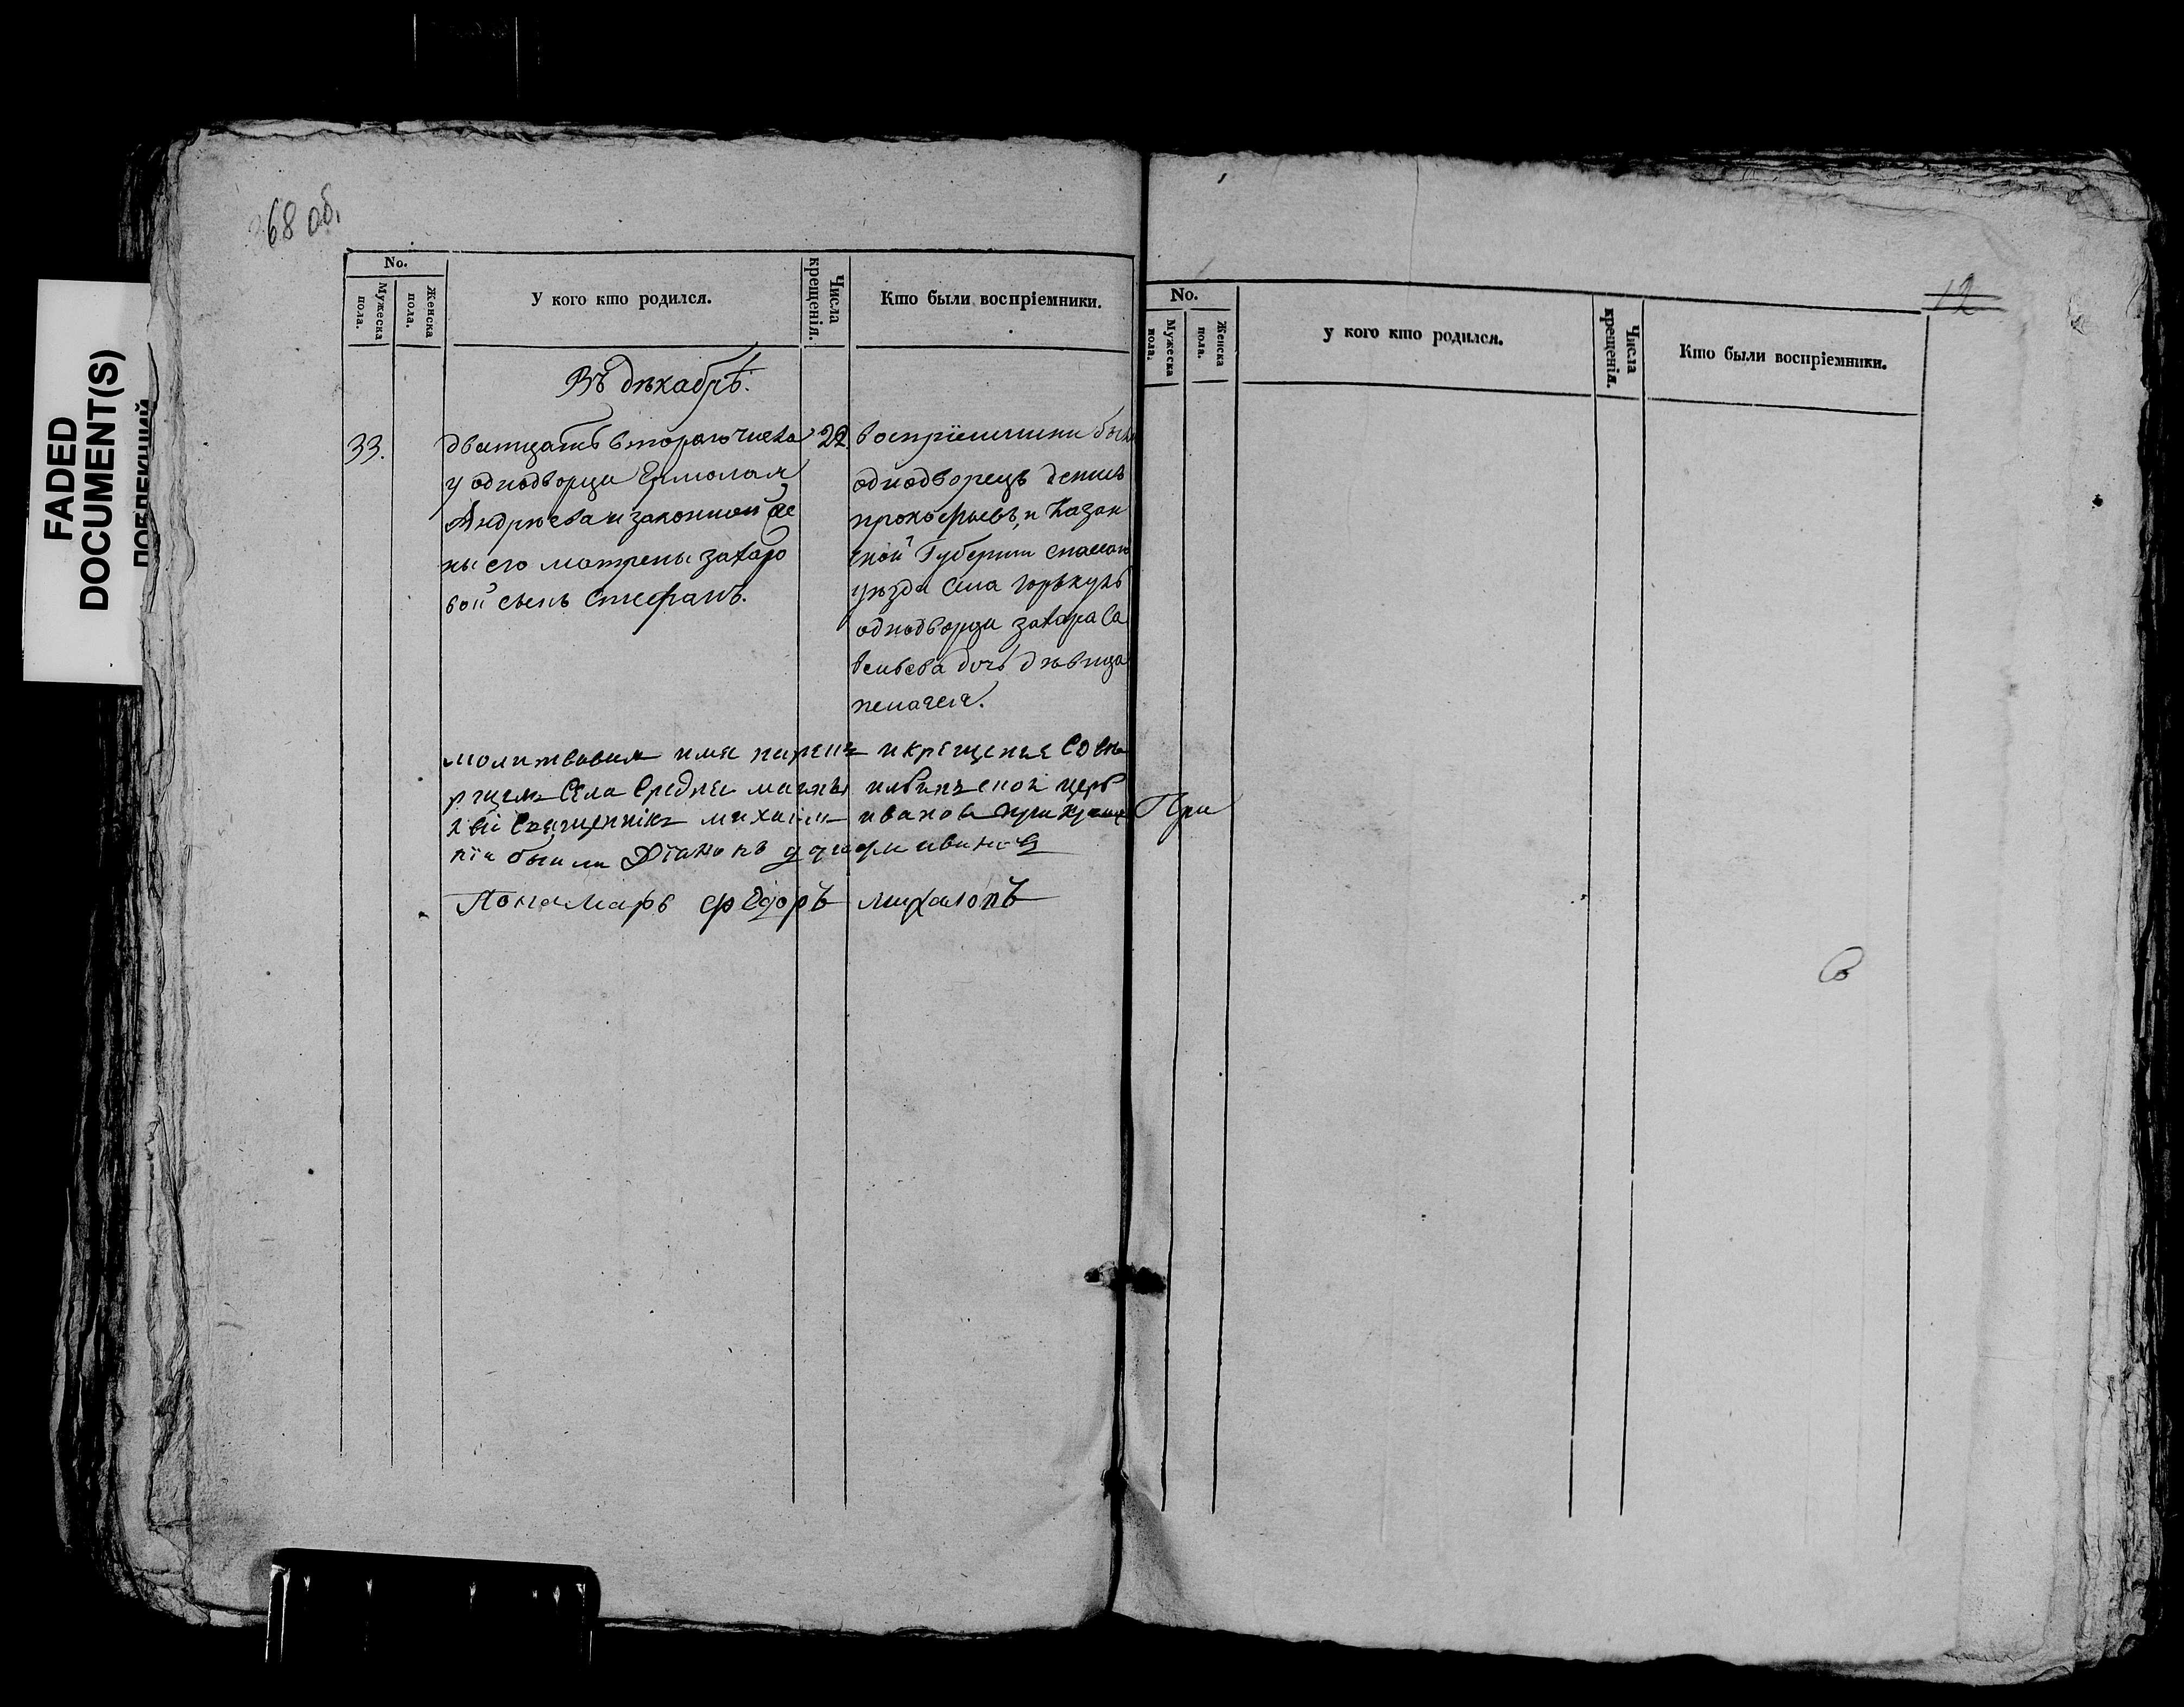 68 об.
FADED
DOCUMENT(S)
No.
Мужеска пола.
Женска пола.
У кого кто родился.
Числа крещенія.
Кто были воспріемники.
Въ дѣкабрѣ.
33.
дватцать втораго числа
у однодворца Ермолая
Андрѣева и законной же
ны его матрены захаро
вой сынъ Стефанъ.
22.
воспріемники были
однодворецъ денисъ
прокофьевъ, и Казан
ской Губерніи спаскаго
уѣзда села
однодворца захара Са
вельева дочь дѣвица
пелагея.
молитвовалъ имя нарекъ и крещенье
села Средней церк
священникъ михаилъ иванов при
нїи были Дїаконъ
Понамарь федоръ
12
No.
Мужеска пола.
Женска пола.
У кого кто родился.
Числа крещенія.
Кто были воспріемники.
При